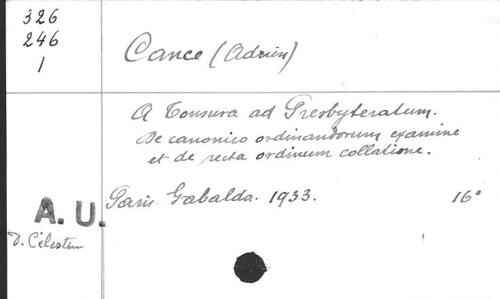 326
246
1
Cance (Adrien)
A Tonsura ad Presbyteratum.
De canonico ordinandorum examine
et de recta ordinum collatione.
Paris. Gabalda. 1933. 16°
A. U.
D. Célestin